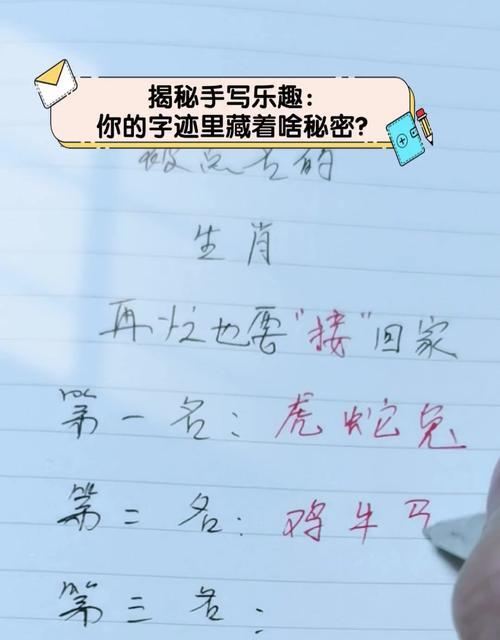 揭秘手写乐趣：
你的字迹里藏着啥秘密？
被点名的
生肖
再忙也要"接"回家
第一名：虎蛇兔
第二名：鸡牛马
第三名：